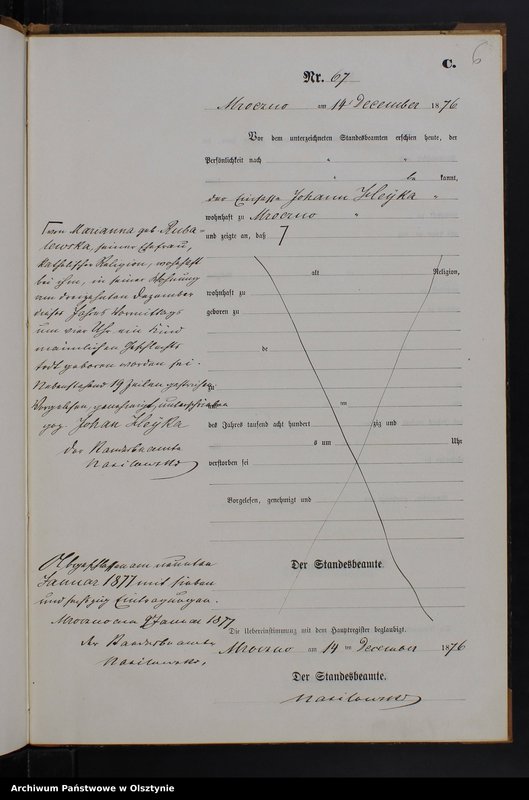 6
C.
Nr. 67
Mroczno am 14 December 1876
Vor dem unterzeichneten Standesbeamten erschien heute, der
Persönlichkeit nach
be kannt,
der Einsasse Johann Kleyka
wohnhaft zu Mroczno
und zeigte an, daß
von Marianna geb Ruba=
lewska, seiner Ehefrau,
katholischer Religion, wohnhaft
bei ihm, in seiner Wohnung
am dreizehnten Dezember
dieses Jahres Vormittags
um vier Uhr ein Kind
männlichen Geschlechts
todt geboren worden sei.
Nebenstehend 19 Zeilen gestrichen
Vorgelesen, genehmigt, unterschrieben
gez Johan Kleyka
Der Standesbeamte
alt Religion,
wohnhaft zu
geboren zu
de
zu
am ten
des Jahres tausend acht hundert zig und
s um Uhr
verstorben sei
Vorgelesen, genehmigt und
Der Standesbeamte.
Abgeschlossen am neunten
Januar 1877 mit sieben
und sechszig Eintragungen.
Mroczno am 9 Januar 1877
der Standesbeamte
Die Uebereinstimmung mit dem Hauptregister beglaubigt.
Mroczno am 14 ten December 1876
Der Standesbeamte.
Archiwum Państwowe w Olsztynie